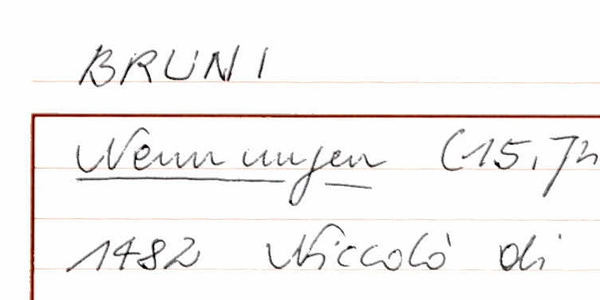 BRUNI
Nennungen (15. Jh
1482 Niccolò di